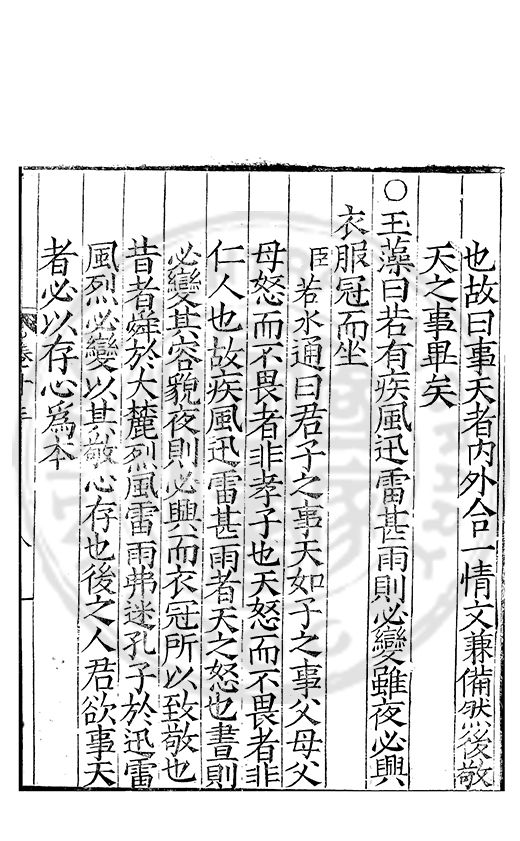 也故曰事天者内外合一情文兼備然後敬
天之事畢矣
○玉藻曰若有疾風迅雷甚雨則必變雖夜必興
衣服冠而坐
臣若水通曰君子之事天如子之事父母父
母怒而不畏者非孝子也天怒而不畏者非
仁人也故疾風迅雷甚雨者天之怒也晝則
必變其容貌夜則必興而衣冠所以致敬也
昔者舜於大麓烈風雷雨弗迷孔子於迅雷
風烈必變以其敬心存也後之人君欲事天
者必以存心為本